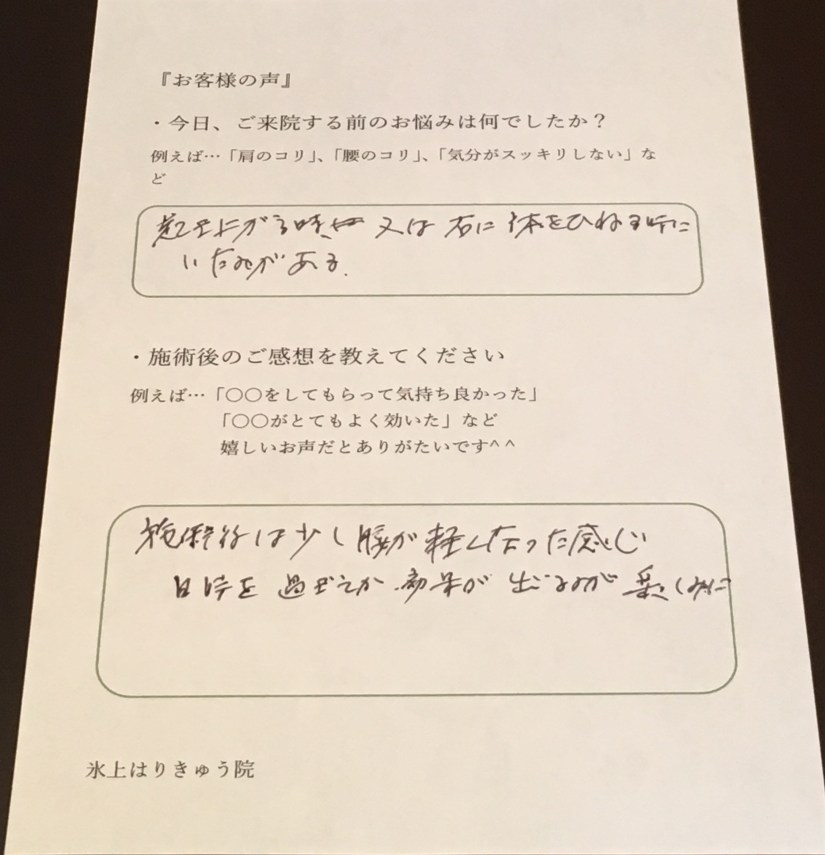 『お客様の声』
・今日、ご来院する前のお悩みは何でしたか？
例えば…「肩のコリ」、「腰のコリ」、「気分がスッキリしない」な
ど
起き上がる時 又は 右に 体をひねる時に
いたみがある.
・施術後のご感想を教えてください
例えば…「〇〇をしてもらって気持ち良かった」
「〇〇がとてもよく効いた」など
嬉しいお声だとありがたいです^ ^
施術後は少し腰が軽くなった感じ
日時を 過ぎてか 効果が 出るのが 楽しみに
氷上はりきゅう院